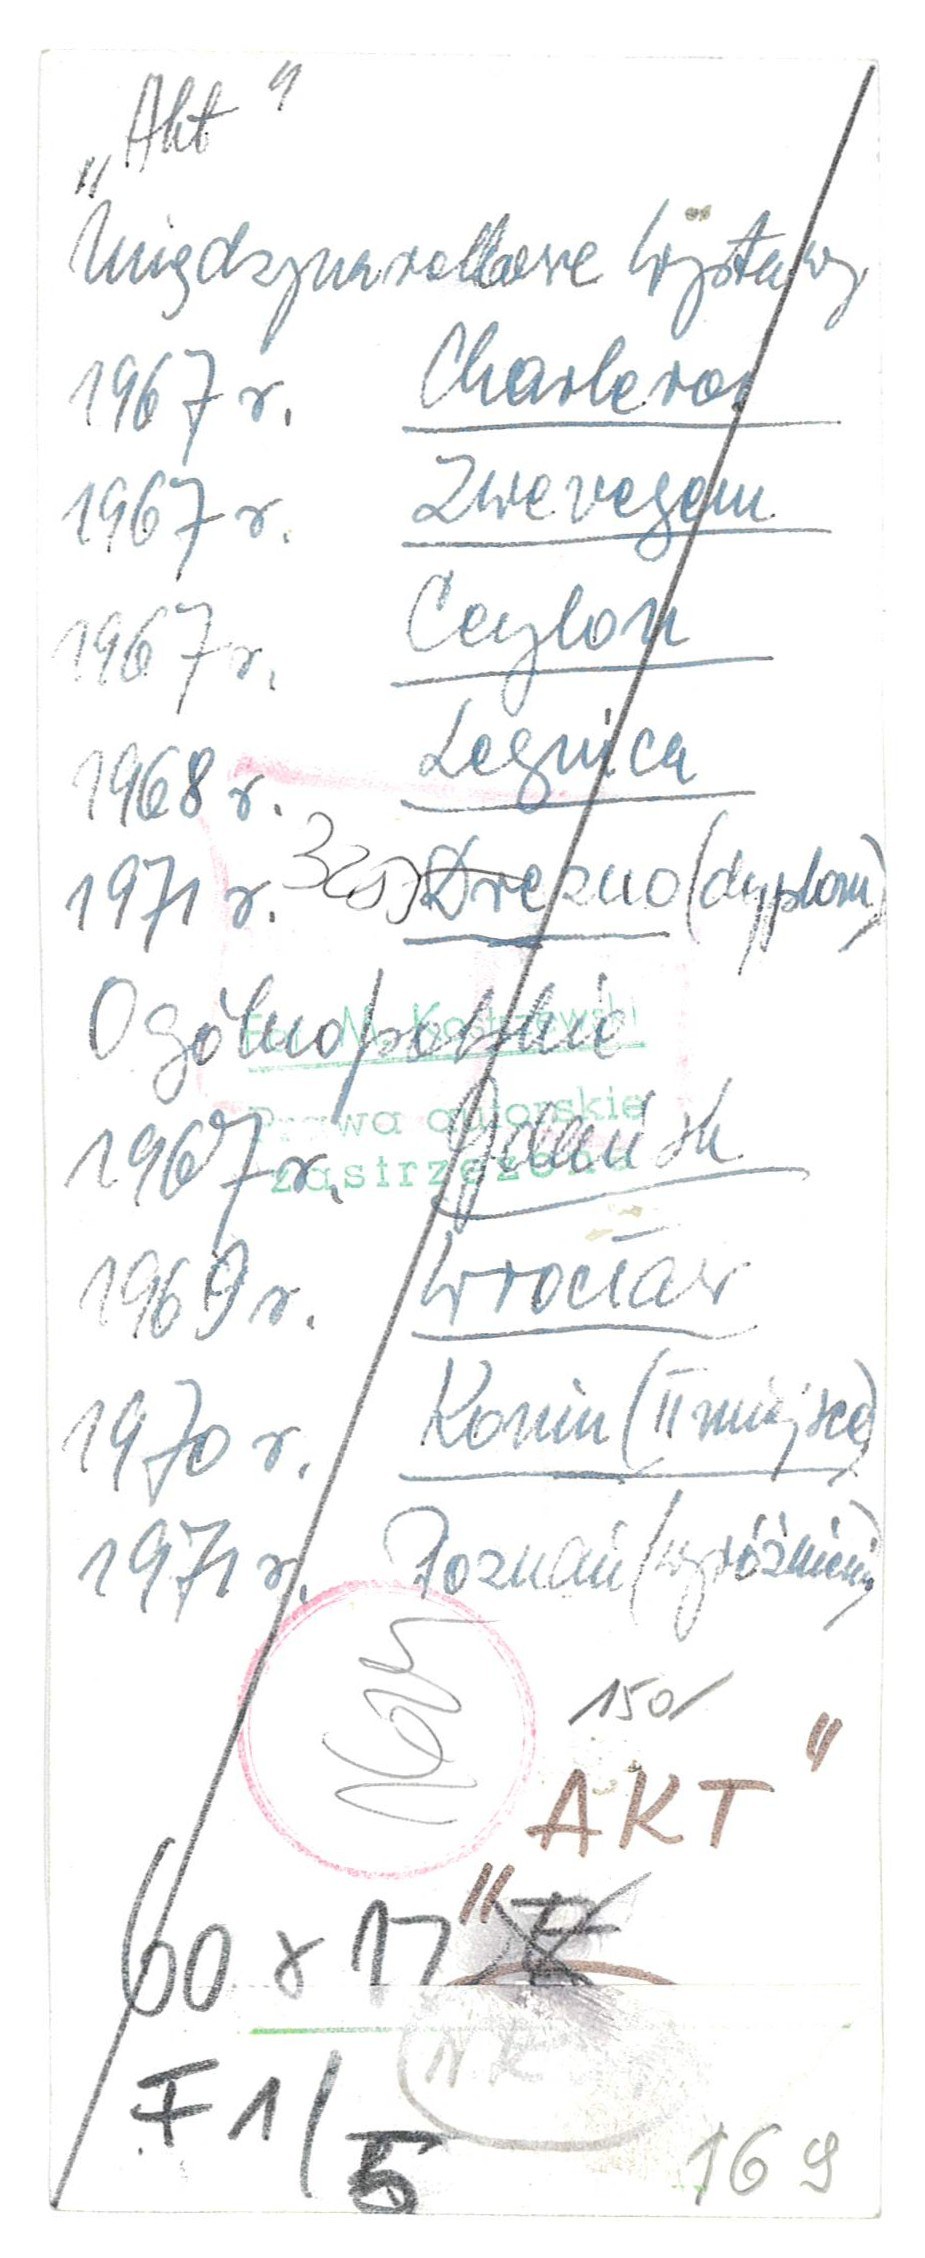 „Akt"
Międzynarodowe Wystawy
1967 r. Charleroi
1967 r. Zwevegem
1967 r. Ceylon
1968 r. Legnica
1971 r. Drezno (dyplom)
Ogólnopolskie
Fot. M. Kostrzewski
Prawa autorskie
zastrzeżone
1967 r. Gdańsk
1969 r. Wrocław
1970 r. Konin (II miejsce)
1971 r. Poznań (wyróżnienie)
150/
"AKT"
60 x 17
F 1/5
169